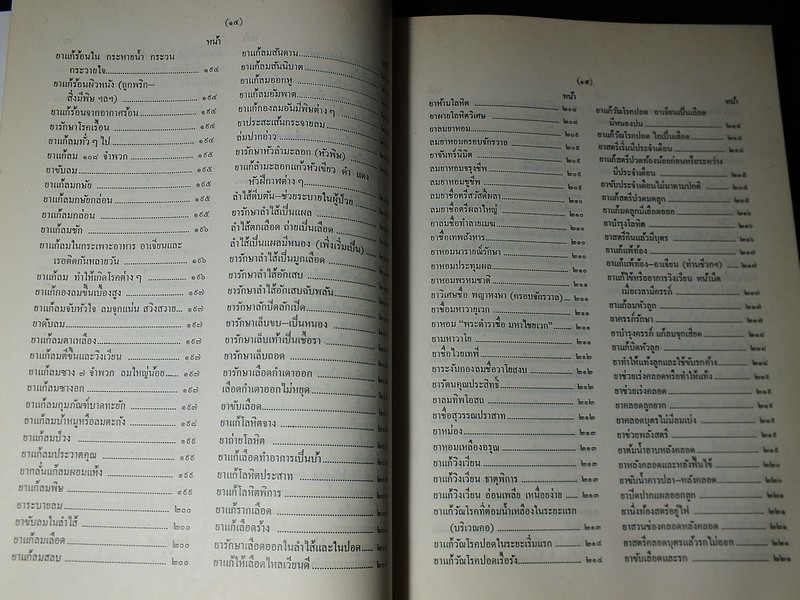 (๑๔)
หน้า
ยาแก้ร้อนใน กระหายน้ำ กระวน
กระวายใจ ๑๙๔
ยาแก้ร้อนผิวหนัง (ถูกพริก-
สิ่งมีพิษ ฯลฯ) ๑๙๔
ยาแก้ร้อนจากอากาศร้อน ๑๙๔
ยารักษาโรคเรื้อน ๑๙๔
ยาแก้ลมทั่ว ๆ ไป ๑๙๔
ยาแก้ลม ๑๐๘ จำพวก ๑๙๕
ยาขับลม ๑๙๕
ยาแก้ลมกษัย ๑๙๕
ยาแก้ลมกษัยกล่อน ๑๙๕
ยาแก้ลมกล่อน ๑๙๕
ยาแก้ลมชัก ๑๙๖
ยาแก้ลมในกระเพาะอาหาร อาเจียนและ
เรอติดกันหลายวัน ๑๙๖
ยาแก้ลม ทำให้เกิดโรคต่าง ๆ ๑๙๖
ยาแก้กองลมขึ้นเบื้องสูง ๑๙๗
ยาแก้ลมจับหัวใจ ลมจุกแน่น สวิงสวาย ๑๙๗
ยาดับลม ๑๙๗
ยาแก้ลมตาเหลือง ๑๙๗
ยาแก้ลมตีขึ้นและวิงเวียน ๑๙๗
ยาแก้ลมซาง ๗ จำพวก ลมใหญ่น้อย ๑๙๗
ยาแก้ลมซางอก ๑๙๗
ยาแก้ลมกุมภัณฑ์บาดทะยัก ๑๙๗
ยาแก้ลมบ้าหมูหรือลมตะกัง ๑๙๘
ยาแก้ลมป่วง ๑๙๙
ยาแก้ลมประวาตคุณ ๑๙๙
ยากลั่นแก้ลมผอมแห้ง ๑๙๙
ยาแก้ลมพิษ ๑๙๙
ยาระบายลม ๒๐๐
ยาขับลมในลำไส้ ๒๐๐
ยาแก้ลมเลือด ๒๐๐
ยาแก้ลมสลบ ๒๐๐
ยาแก้ลมสันดาน
ยาแก้ลมสันนิบาต
ยาแก้ลมออกหู
ยาแก้ลมอัมพาต
ยาแก้กองลมอันมีพิษต่าง ๆ
ยาประสะเส้นกระจายลม
ลมปากอ่าว
ยารักษาหัวลำมะลอก (หัวพิษ)
ยาแก้ลำมะลอกแก้วหัวเขียว ดำ แดง
หัวฝีกาฬต่าง ๆ
ลำไส้ตีบตัน-ช่วยระบายในผู้ป่วย
ยารักษาลำไส้เป็นแผล
ลำไส้ตกเลือด ถ่ายเป็นเลือด
ลำไส้เป็นแผลมีหนอง (เพิ่งเริ่มเป็น)
ยารักษาลำไส้เป็นมูกเลือด
ยารักษาลำไส้อักเสบ
ยารักษาลำไส้อักเสบฉับพลัน
ยารักษาลักปิดลักเปิด
ยารักษาเล็บขบ-เป็นหนอง
ยารักษาเล็บเท้าเป็นเชื้อรา
ยารักษาเล็บถอด
ยารักษาเลือดกำเดาออก
เลือดกำเดาออกไม่หยุด
ยาขับเลือด
ยาแก้โลหิตจาง
ยาถ่ายโลหิต
ยาแก้เลือดทำอาการเป็นบ้า
ยาแก้โลหิตประสาท
ยาแก้โลหิตพิการ
ยาแก้รากเลือด
ยาแก้เลือดร้าง
ยารักษาเลือดออกในลำไส้และในปอด
ยาแก้ให้เลือดไหลเวียนดี
(๑๕)
หน้า
ยาห้ามโลหิต ๒๐๘
ยาผายโลหิตวิเศษ ๒๐๘
ยาลมยาหอม ๒๐๙
ลมยาหอมครอบจักรวาล ๒๐๙
ยาจันทร์นิมิต ๒๐๙
ลมยาหอมจรุงชีพ ๒๐๙
ลมยาหอมชูชีพ ๒๐๙
ลมยาชื่อตรีสวัสดิผลา ๒๑๐
ลมยาชื่อตรีผลาใหญ่ ๒๑๐
ลมยาชื่อทำลายเมฆ ๒๑๐
ยาชื่อเทพสังหาร ๒๑๐
ยาหอมนารายณ์รักษา ๒๑๐
ยาหอมประทุมผล ๒๑๐
ยาหอมพรหมชาติ ๒๑๐
ยาวิเศษชื่อ พญาหงษา (ครอบจักรวาล) ๒๑๐
ยาชื่อมหาวายุเวก ๒๑๑
ยาหอม "พระตำราชื่อ มหาไชยเวก" ๒๑๑
ยามหาวาโย ๒๑๑
ยาชื่อไวยเทที่ ๒๑๒
ยาระงับกองลมชื่อวายสงบ ๒๑๒
ยารัตนคุณประสิทธิ์ ๒๑๒
ยาลมทิพโอสถ ๒๑๒
ยาชื่อสุวรรณปราสาท ๒๑๒
ยาหม่อง ๒๑๓
ยาหอมเหลืองอรุณ ๒๑๓
ยาแก้วิงเวียน ๒๑๓
ยาแก้วิงเวียน ธาตุพิการ ๒๑๓
ยาแก้วิงเวียน อ่อนเพลีย เหนื่อยง่าย ๒๑๓
ยาแก้วัณโรคที่ต่อมน้ำเหลืองในระยะแรก
(บริเวณคอ) ๒๑๓
ยาแก้วัณโรคปอดในระยะเริ่มแรก ๒๑๔
ยาแก้วัณโรคปอดเรื้อรัง ๒๑๔
หน้า
ยาแก้วัณโรคปอด อาเจียนเป็นเลือด
มีหนองปน ๒๑๔
ยาแก้วัณโรคปอด ไอเป็นเลือด ๒๑๔
ยาสตรีเริ่มมีประจำเดือน ๒๑๕
ยาแก้สตรีปวดท้องน้อยก่อนหรือระหว่าง
มีประจำเดือน ๒๑๕
ยาขับประจำเดือนไม่มาตามปกติ ๒๑๕
ยาแก้สตรีปวดมดลูก ๒๑๕
ยาแก้มดลูกมีเลือดออก ๒๑๖
ยาบำรุงโลหิต ๒๑๖
ยาสตรีกินแล้วมีบุตร ๒๑๖
ยาแก้แพ้ท้อง ๒๑๖
ยาแก้แพ้ท้อง-อาเจียน (ท่านชีวกฯ) ๒๑๗
ยาแก้ไข้หรืออาการวิงเวียน หน้ามืด
เมื่อเวลามีครรภ์ ๒๑๗
ยาแก้ลมหัวลูก ๒๑๗
ยาครรภ์รักษา ๒๑๗
ยาบำรุงครรภ์ แก้ลมจุกเสียด ๒๑๗
ยาแก้บิดหัวลูก ๒๑๘
ยาทำให้แท้งลูกและใช้ขับรกค้าง ๒๑๘
ยาช่วยเร่งคลอดหรือทำให้แท้ง ๒๑๙
ยาช่วยเร่งคลอด ๒๑๙
ยาคลอดลูกยาก ๒๑๙
ยาคลอดบุตรไม่มีลมเบ่ง ๒๑๙
ยาช่วยพลังสตรี ๒๑๙
ยาต้มน้ำอาบหลังคลอด ๒๑๙
ยาหลังคลอดและหลังฟื้นไข้ ๒๒๐
ยาขับน้ำคาวปลา-หลังคลอด ๒๒๐
ยาปิดปากแผลออกลูก ๒๒๑
ยานั่งท้องสตรีอยู่ไฟ ๒๒๑
ยาสวนช่องคลอดหลังคลอด ๒๒๑
ยาสตรีคลอดบุตรแล้วรกไม่ออก ๒๒๑
ยาขับเลือดและรก ๒๒๑